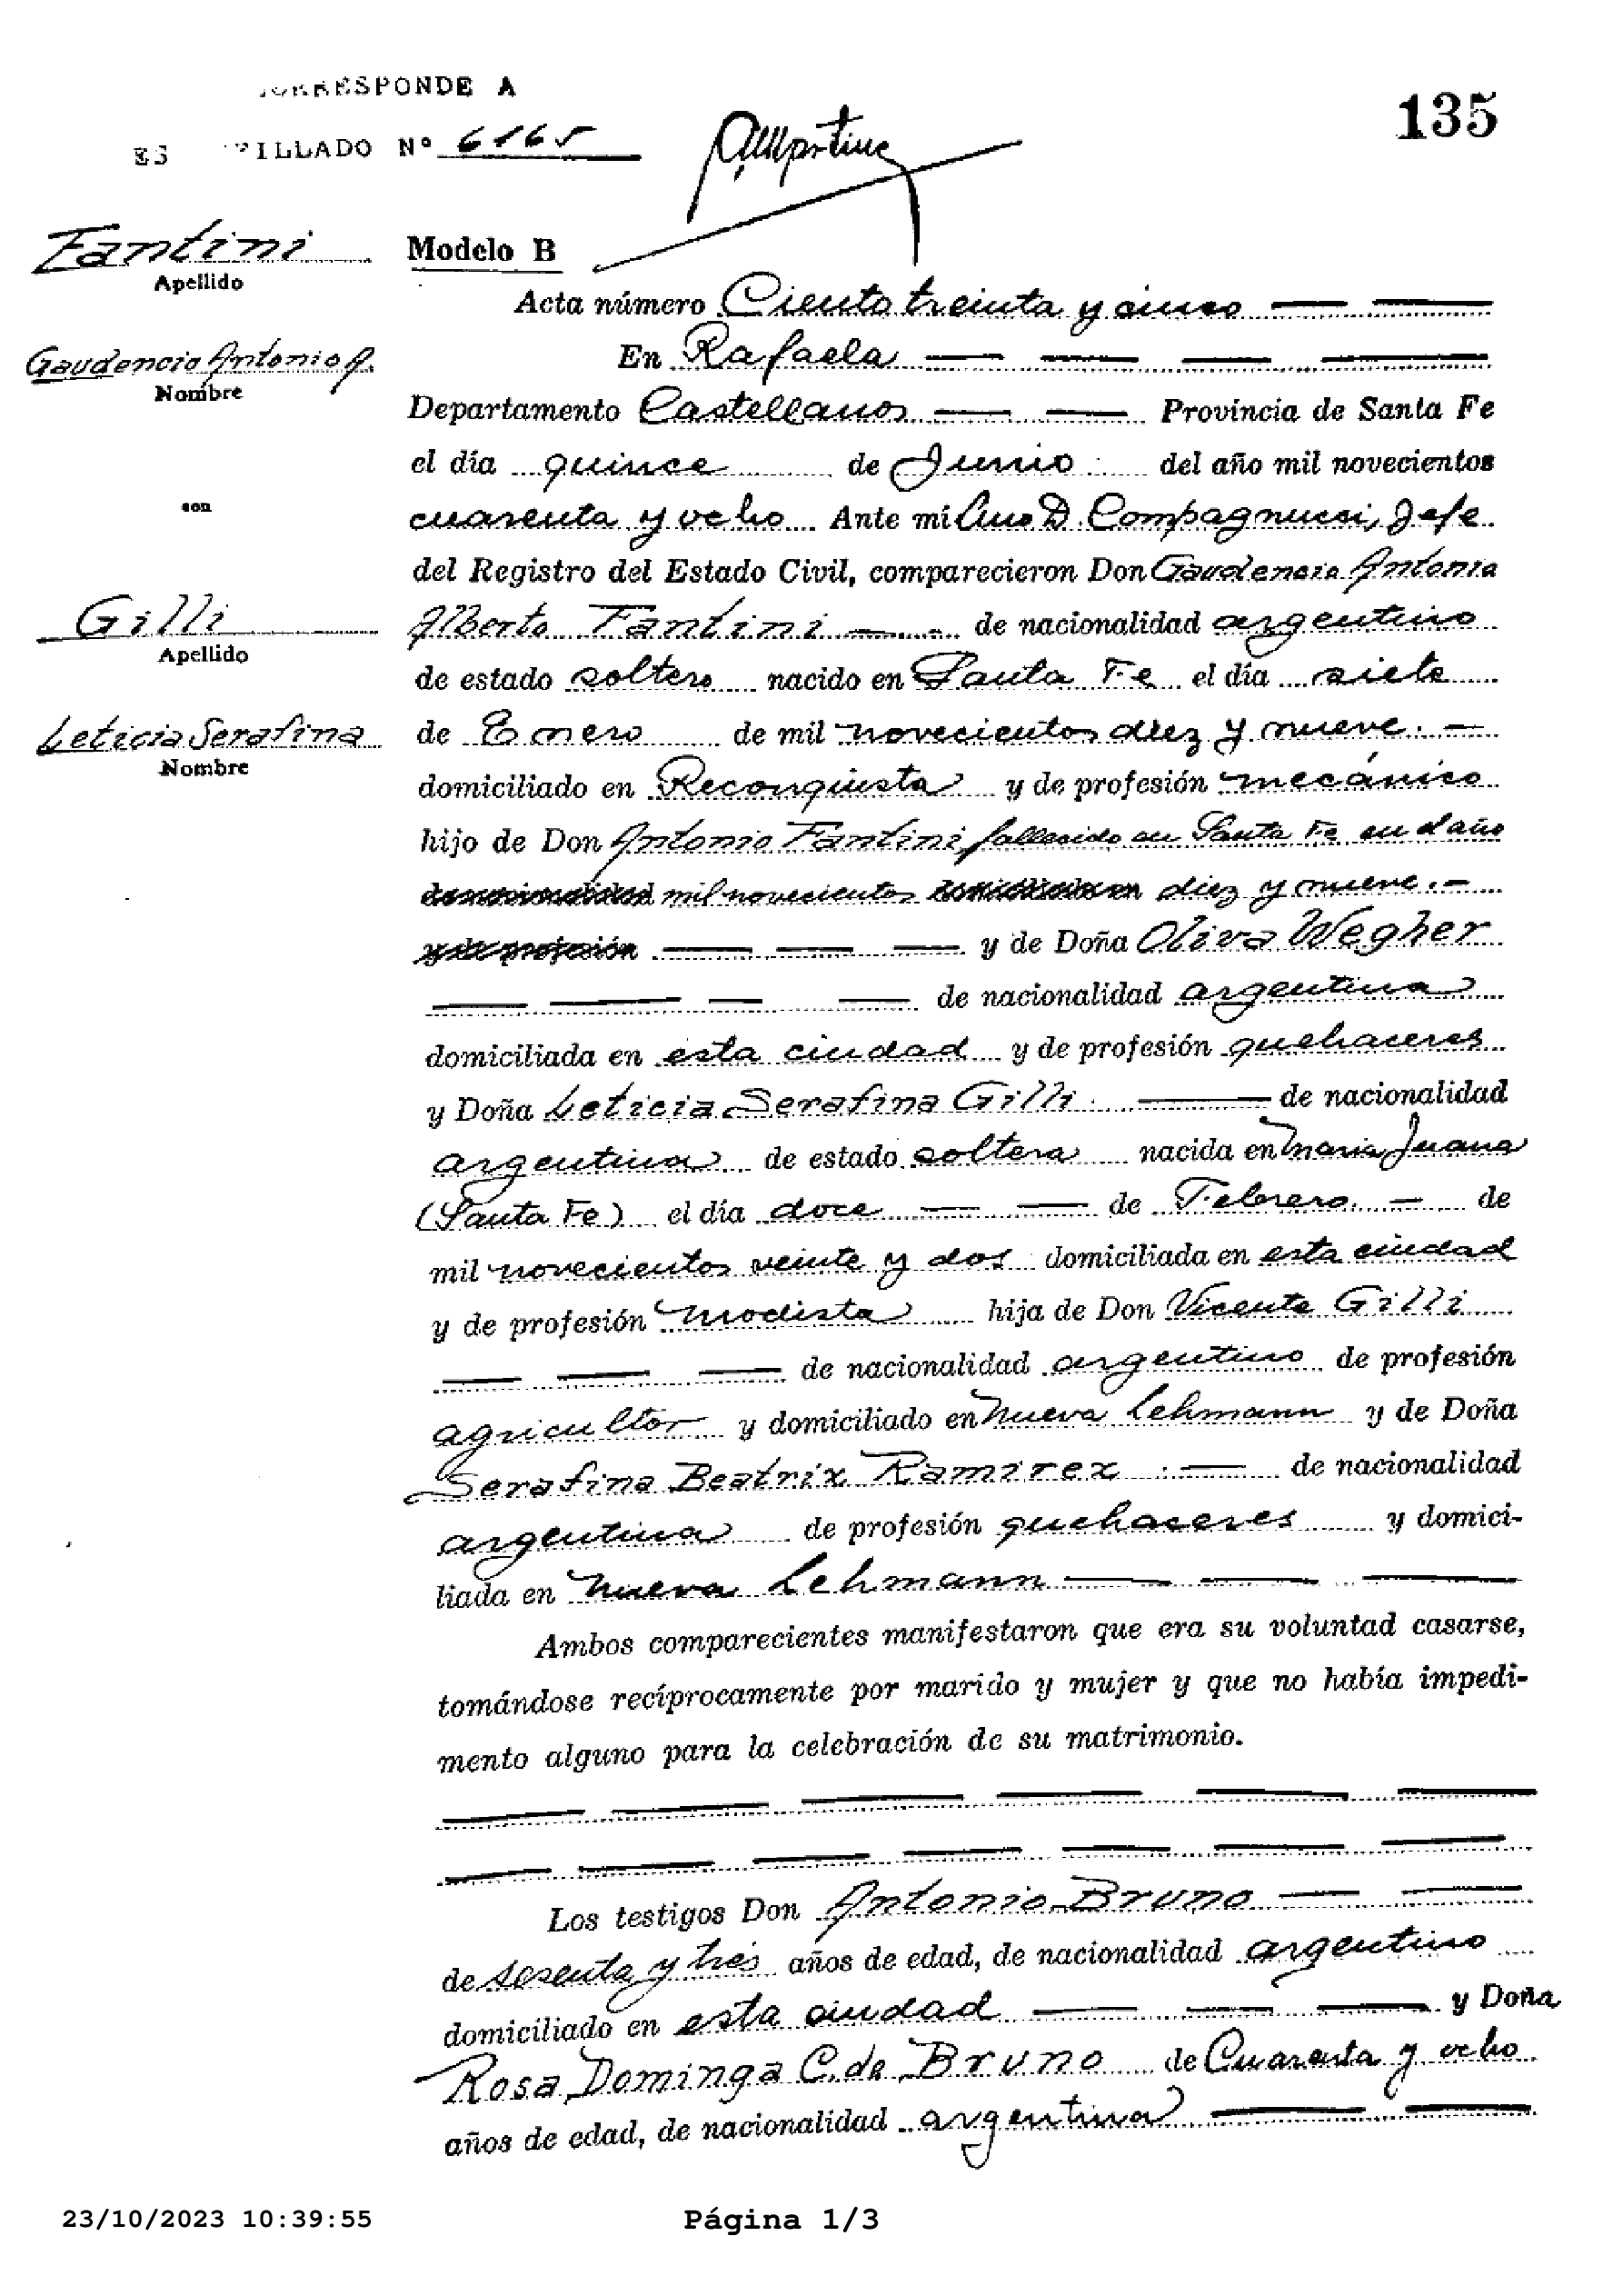 CORRESPONDE A
ES TILLADO Nº 6165
135
Fantini
Apellido
Gaudencio Antonio A.
Nombre
con
Gilli
Apellido
Leticia Serafina
Nombre
Modelo B
Acta número Ciento treinta y cinco
En Rafaela
Departamento Castellanos Provincia de Santa Fe
el día quince de Junio del año mil novecientos
cuarenta y ocho Ante mí Lino D. Compagnucci, Jefe
del Registro del Estado Civil, comparecieron Don Gaudencio Antonio
Alberto Fantini de nacionalidad argentino
de estado soltero nacido en Santa Fe el día siete
de Enero de mil novecientos diez y nueve.
domiciliado en Reconquista y de profesión mecánico
hijo de Don Antonio Fantini, fallecido en Santa Fe en el año
de nacionalidad mil novecientos domiciliado en diez y nueve.
y de profesión y de Doña Oliva Wegher
de nacionalidad argentina
domiciliada en esta ciudad y de profesión quehaceres
y Doña Leticia Serafina Gilli de nacionalidad
argentina de estado soltera nacida en María Juana
(Santa Fe) el día doce de Febrero de
mil novecientos veinte y dos domiciliada en esta ciudad
y de profesión modista hija de Don Vicente Gilli
de nacionalidad argentino de profesión
agricultor y domiciliado en Nueva Lehmann y de Doña
Serafina Beatrix Ramirez de nacionalidad
argentina de profesión quehaceres y domici-
liada en Nueva Lehmann
Ambos comparecientes manifestaron que era su voluntad casarse,
tomándose recíprocamente por marido y mujer y que no había impedi-
mento alguno para la celebración de su matrimonio.
Los testigos Don Antonio Bruno
de sesenta y tres años de edad, de nacionalidad argentino
domiciliado en esta ciudad y Doña
Rosa Dominga C. de Bruno de Cuarenta y ocho
años de edad, de nacionalidad argentina
23/10/2023 10:39:55 Página 1/3